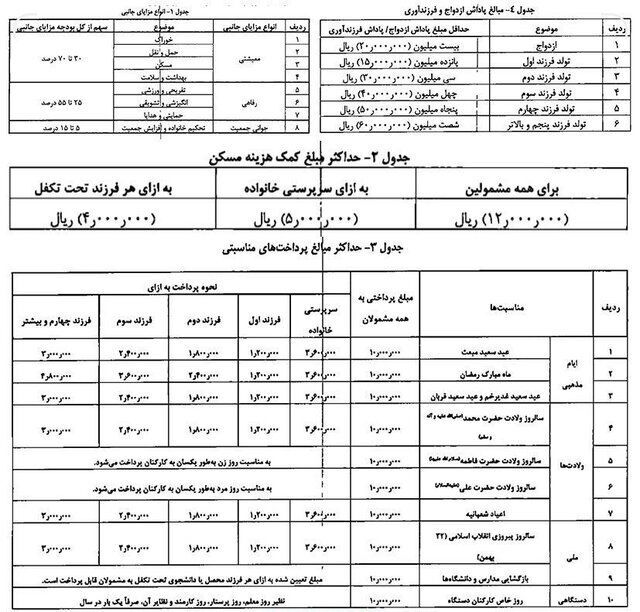 جدول ۴- مبالغ پاداش ازدواج و فرزندآوری
ردیف موضوع حداقل مبلغ پاداش ازدواج/ پاداش فرزندآوری
۱ ازدواج بیست میلیون (۲۰٫۰۰۰٫۰۰۰) ریال
۲ تولد فرزند اول پانزده میلیون (۱۵٫۰۰۰٫۰۰۰) ریال
۳ تولد فرزند دوم سی میلیون (۳۰٫۰۰۰٫۰۰۰) ریال
۴ تولد فرزند سوم چهل میلیون (۴۰٫۰۰۰٫۰۰۰) ریال
۵ تولد فرزند چهارم پنجاه میلیون (۵۰٫۰۰۰٫۰۰۰) ریال
۶ تولد فرزند پنجم و بالاتر شصت میلیون (۶۰٫۰۰۰٫۰۰۰) ریال
جدول ۱- انواع مزایای جانبی
ردیف موضوع انواع مزایای جانبی سهم از کل بودجه مزایای جانبی
۱ خوراک معیشتی ۳۰ تا ۷۰ درصد
۲ حمل و نقل
۳ مسکن
۴ بهداشت و سلامت
۵ تفریحی و ورزشی رفاهی ۲۵ تا ۵۵ درصد
۶ انگیزشی و تشویقی
۷ حمایتی و هدایا
۸ تحکیم خانواده و افزایش جمعیت جوانی جمعیت ۵ تا ۱۵ درصد
جدول ۲- حداکثر مبلغ کمک هزینه مسکن
برای همه مشمولین به ازای سرپرستی خانواده به ازای هر فرزند تحت تکفل
(۱۲٫۰۰۰٫۰۰۰) ریال (۵٫۰۰۰٫۰۰۰) ریال (۴٫۰۰۰٫۰۰۰) ریال
جدول ۳- حداکثر مبالغ پرداخت‌های مناسبتی
ردیف مناسبت‌ها مبلغ پرداختی به همه مشمولان نحوه پرداخت به ازای
سرپرستی خانواده فرزند اول فرزند دوم فرزند سوم فرزند چهارم و بیشتر
ایام مذهبی
۱ عید سعید مبعث ۱۰٫۰۰۰٫۰۰۰ ۳٫۶۰۰٫۰۰۰ ۱٫۲۰۰٫۰۰۰ ۱٫۸۰۰٫۰۰۰ ۲٫۴۰۰٫۰۰۰ ۳٫۰۰۰٫۰۰۰
۲ ماه مبارک رمضان ۱۰٫۰۰۰٫۰۰۰ ۳٫۶۰۰٫۰۰۰ ۱٫۲۰۰٫۰۰۰ ۲٫۴۰۰٫۰۰۰ ۳٫۶۰۰٫۰۰۰ ۴٫۸۰۰٫۰۰۰
۳ عید سعید غدیرخم و عید سعید قربان ۱۰٫۰۰۰٫۰۰۰ ۳٫۶۰۰٫۰۰۰ ۱٫۲۰۰٫۰۰۰ ۱٫۸۰۰٫۰۰۰ ۲٫۴۰۰٫۰۰۰ ۳٫۰۰۰٫۰۰۰
ولادت‌ها
۴ سالروز ولادت حضرت محمد ۱۰٫۰۰۰٫۰۰۰ ۳٫۶۰۰٫۰۰۰ ۱٫۲۰۰٫۰۰۰ ۱٫۸۰۰٫۰۰۰ ۲٫۴۰۰٫۰۰۰ ۳٫۰۰۰٫۰۰۰
۵ سالروز ولادت حضرت فاطمه ۱۰٫۰۰۰٫۰۰۰ به مناسبت روز زن به‌طور یکسان به کارکنان پرداخت می‌شود.
۶ سالروز ولادت حضرت علی ۱۰٫۰۰۰٫۰۰۰ به مناسبت روز مرد به‌طور یکسان به کارکنان پرداخت می‌شود.
۷ اعیاد شعبانیه ۱۰٫۰۰۰٫۰۰۰ ۳٫۶۰۰٫۰۰۰ ۱٫۲۰۰٫۰۰۰ ۱٫۸۰۰٫۰۰۰ ۲٫۴۰۰٫۰۰۰ ۳٫۰۰۰٫۰۰۰
ملی
۸ سالروز پیروزی انقلاب اسلامی (۲۲ بهمن) ۱۰٫۰۰۰٫۰۰۰ ۳٫۶۰۰٫۰۰۰ ۱٫۲۰۰٫۰۰۰ ۱٫۸۰۰٫۰۰۰ ۲٫۴۰۰٫۰۰۰ ۳٫۰۰۰٫۰۰۰
۹ بازگشایی مدارس و دانشگاه‌ها ۱۰٫۰۰۰٫۰۰۰ مبلغ تعیین شده به ازای هر فرزند محصل یا دانشجوی تحت تکفل به مشمولان قابل پرداخت است.
۱۰ دستگاهی روز خاص کارکنان دستگاه ۱۰٫۰۰۰٫۰۰۰ نظیر روز معلم، روز پرستار، روز کارمند و نظایر آن، صرفاً یک بار در سال